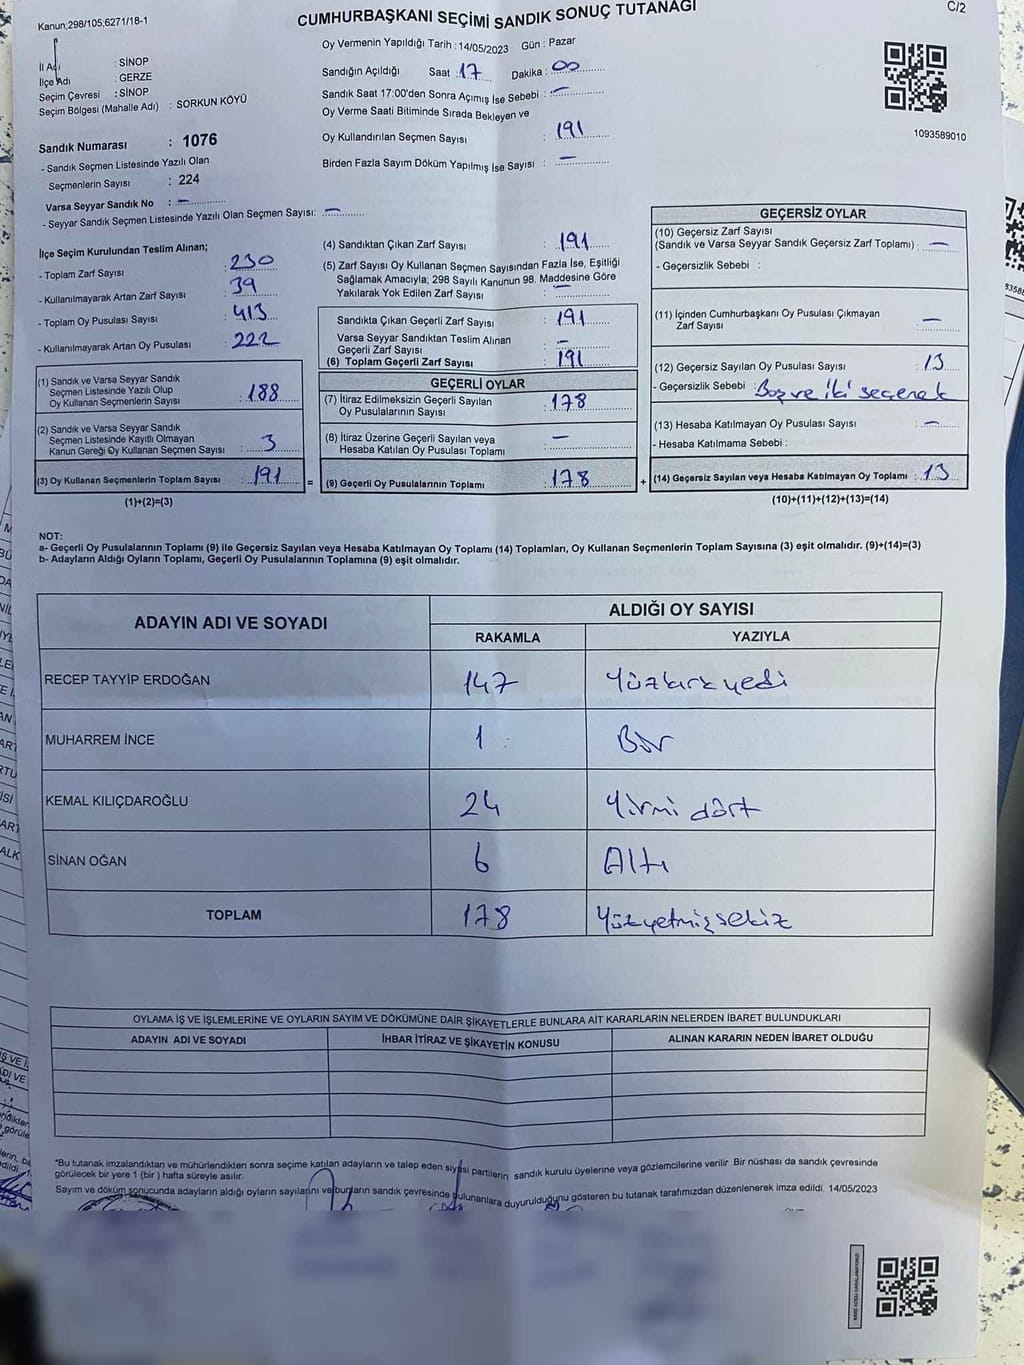 Kanun;298/105;6271/18-1
CUMHURBAŞKANI SEÇİMİ SANDIK SONUÇ TUTANAĞI
C/2
İl Adı : SİNOP
İlçe Adı : GERZE
Seçim Çevresi : SİNOP
Seçim Bölgesi (Mahalle Adı) : SORKUN KÖYÜ
Sandık Numarası : 1076
- Sandık Seçmen Listesinde Yazılı Olan
Seçmenlerin Sayısı : 224
Varsa Seyyar Sandık No : –
- Seyyar Sandık Seçmen Listesinde Yazılı Olan Seçmen Sayısı: –
Oy Vermenin Yapıldığı Tarih : 14/05/2023 Gün : Pazar
Sandığın Açıldığı Saat : 17 Dakika : 00
Sandık Saat 17:00'den Sonra Açımış İse Sebebi : –
Oy Verme Saati Bitiminde Sırada Bekleyen ve
Oy Kullandırılan Seçmen Sayısı : 191
Birden Fazla Sayım Döküm Yapılmış İse Sayısı : –
1093589010
İlçe Seçim Kurulundan Teslim Alınan;
- Toplam Zarf Sayısı : 230
- Kullanılmayarak Artan Zarf Sayısı : 39
- Toplam Oy Pusulası Sayısı : 413
- Kullanılmayarak Artan Oy Pusulası : 222
(1) Sandık ve Varsa Seyyar Sandık
Seçmen Listesinde Yazılı Olup
Oy Kullanan Seçmenlerin Sayısı : 188
(2) Sandık ve Varsa Seyyar Sandık
Seçmen Listesinde Kayıtlı Olmayan
Kanun Gereği Oy Kullanan Seçmen Sayısı : 3
(3) Oy Kullanan Seçmenlerin Toplam Sayısı : 191 =
(1)+(2)=(3)
(4) Sandıktan Çıkan Zarf Sayısı : 191
(5) Zarf Sayısı Oy Kullanan Seçmen Sayısından Fazla İse, Eşitliği
Sağlamak Amacıyla; 298 Sayılı Kanunun 98. Maddesine Göre
Yakılarak Yok Edilen Zarf Sayısı : –
Sandıkta Çıkan Geçerli Zarf Sayısı : 191
Varsa Seyyar Sandıktan Teslim Alınan
Geçerli Zarf Sayısı : –
(6) Toplam Geçerli Zarf Sayısı : 191
GEÇERLİ OYLAR
(7) İtiraz Edilmeksizin Geçerli Sayılan
Oy Pusulalarının Sayısı : 178
(8) İtiraz Üzerine Geçerli Sayılan veya
Hesaba Katılan Oy Pusulası Toplamı : –
(9) Geçerli Oy Pusulalarının Toplamı : 178 +
GEÇERSİZ OYLAR
(10) Geçersiz Zarf Sayısı
(Sandık ve Varsa Seyyar Sandık Geçersiz Zarf Toplamı) : –
- Geçersizlik Sebebi :
(11) İçinden Cumhurbaşkanı Oy Pusulası Çıkmayan
Zarf Sayısı : –
(12) Geçersiz Sayılan Oy Pusulası Sayısı : 13
- Geçersizlik Sebebi : Boş ve iki seçenek
(13) Hesaba Katılmayan Oy Pusulası Sayısı : –
- Hesaba Katılmama Sebebi :
(14) Geçersiz Sayılan veya Hesaba Katılmayan Oy Toplamı : 13
(10)+(11)+(12)+(13)=(14)
NOT:
a- Geçerli Oy Pusulalarının Toplamı (9) ile Geçersiz Sayılan veya Hesaba Katılmayan Oy Toplamı (14) Toplamları, Oy Kullanan Seçmenlerin Toplam Sayısına (3) eşit olmalıdır. (9)+(14)=(3)
b- Adayların Aldığı Oyların Toplamı, Geçerli Oy Pusulalarının Toplamına (9) eşit olmalıdır.
ADAYIN ADI VE SOYADI
ALDIĞI OY SAYISI
RAKAMLA YAZIYLA
RECEP TAYYİP ERDOĞAN 147 Yüzkırkyedi
MUHARREM İNCE 1 Bir
KEMAL KILIÇDAROĞLU 24 Yirmi dört
SİNAN OĞAN 6 Altı
TOPLAM 178 Yüzyetmişsekiz
OYLAMA İŞ VE İŞLEMLERİNE VE OYLARIN SAYIM VE DÖKÜMÜNE DAİR ŞİKAYETLERLE BUNLARA AİT KARARLARIN NELERDEN İBARET BULUNDUKLARI
ADAYIN ADI VE SOYADI İHBAR İTİRAZ VE ŞİKAYETİN KONUSU ALINAN KARARIN NEDEN İBARET OLDUĞU
*Bu tutanak imzalandıktan ve mühürlendikten sonra seçime katılan adayların ve talep eden siyasi partilerin sandık kurulu üyelerine veya gözlemcilerine verilir .Bir nüshası da sandık çevresinde
görülecek bir yere 1 (bir) hafta süreyle asılır.
Sayım ve döküm sonucunda adayların aldığı oyların sayılarını ve bunların sandık çevresinde bulunanlara duyurulduğunu gösteren bu tutanak tarafımızdan düzenlenerek imza edildi. 14/05/2023